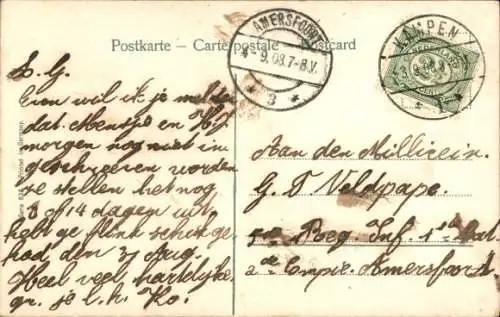 Postkarte – Carte postale – Postcard
AMERSFOORT
4- 9.08.7-8V.
3
KAMPEN
L. G.
Even wil ik je melden
dat Mensje en H. J.
morgen nog niet in
geschreeven worden
ze stellen het nog
8 of 14 dagen uit
hebt ge flink schik ge-
had den 31 Aug.
Heel veel hartelijke
gr. je l. h. Ko.
Aan den Millicein
G. T Veldpape.
5de Reg. Inf. 1ste Bat
2de Compie. Amersfoort